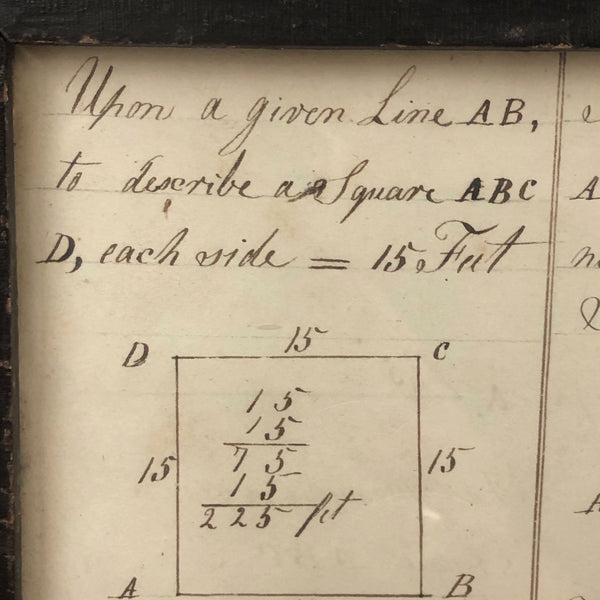 Upon a given Line AB,
to describe a Square ABC
D, each side = 15 Feet
D 15 C
15
15
15 75 15
15
225 fet
A B
A